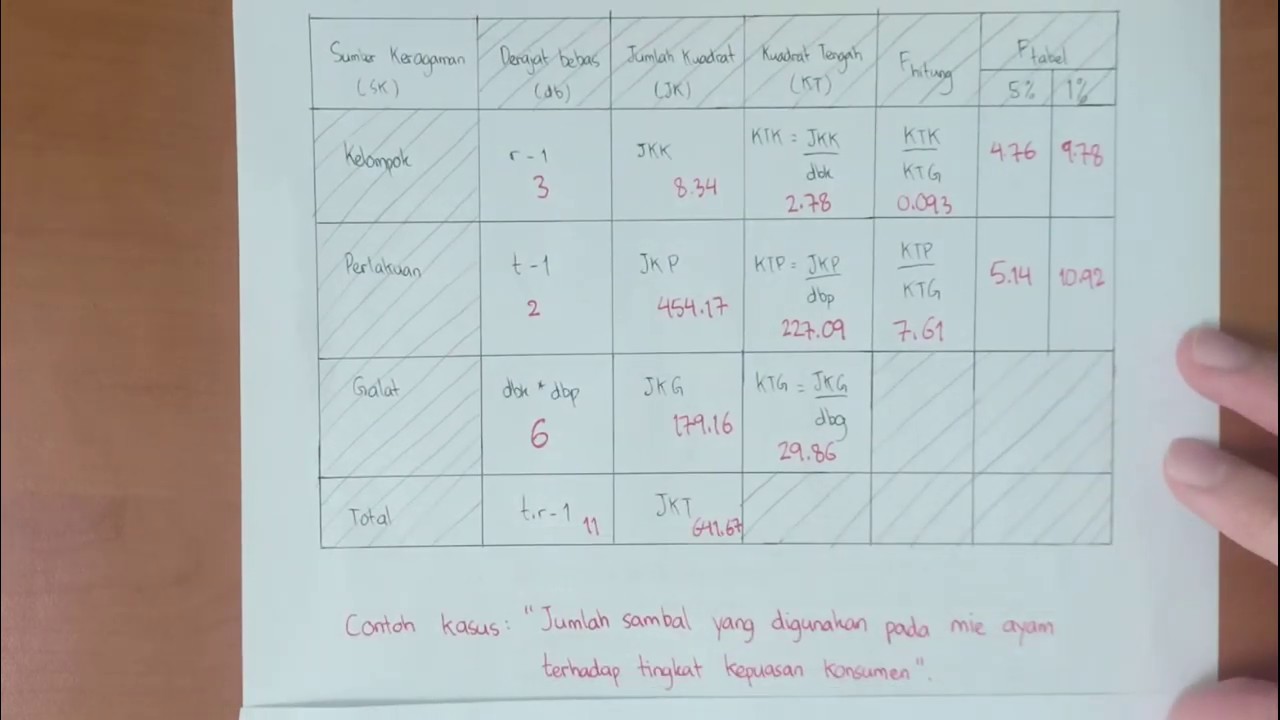 Sumber Keragaman (SK)
Derajat bebas (db)
Jumlah Kuadrat (JK)
Kuadrat Tengah (KT)
Fhitung
Ftabel
5% 1%
Kelompok
r-1
3
JKK
8.34
KTK = JKK / dbk
2.78
KTK / KTG
0.093
4.76 9.78
Perlakuan
t-1
2
JKP
454.17
KTP = JKP / dbp
227.09
KTP / KTG
7.61
5.14 10.92
Galat
dbk * dbp
6
JKG
179.16
KTG = JKG / dbg
29.86
Total
t.r-1
11
JKT
641.67
Contoh kasus: "Jumlah sambal yang digunakan pada mie ayam
terhadap tingkat kepuasan konsumen".